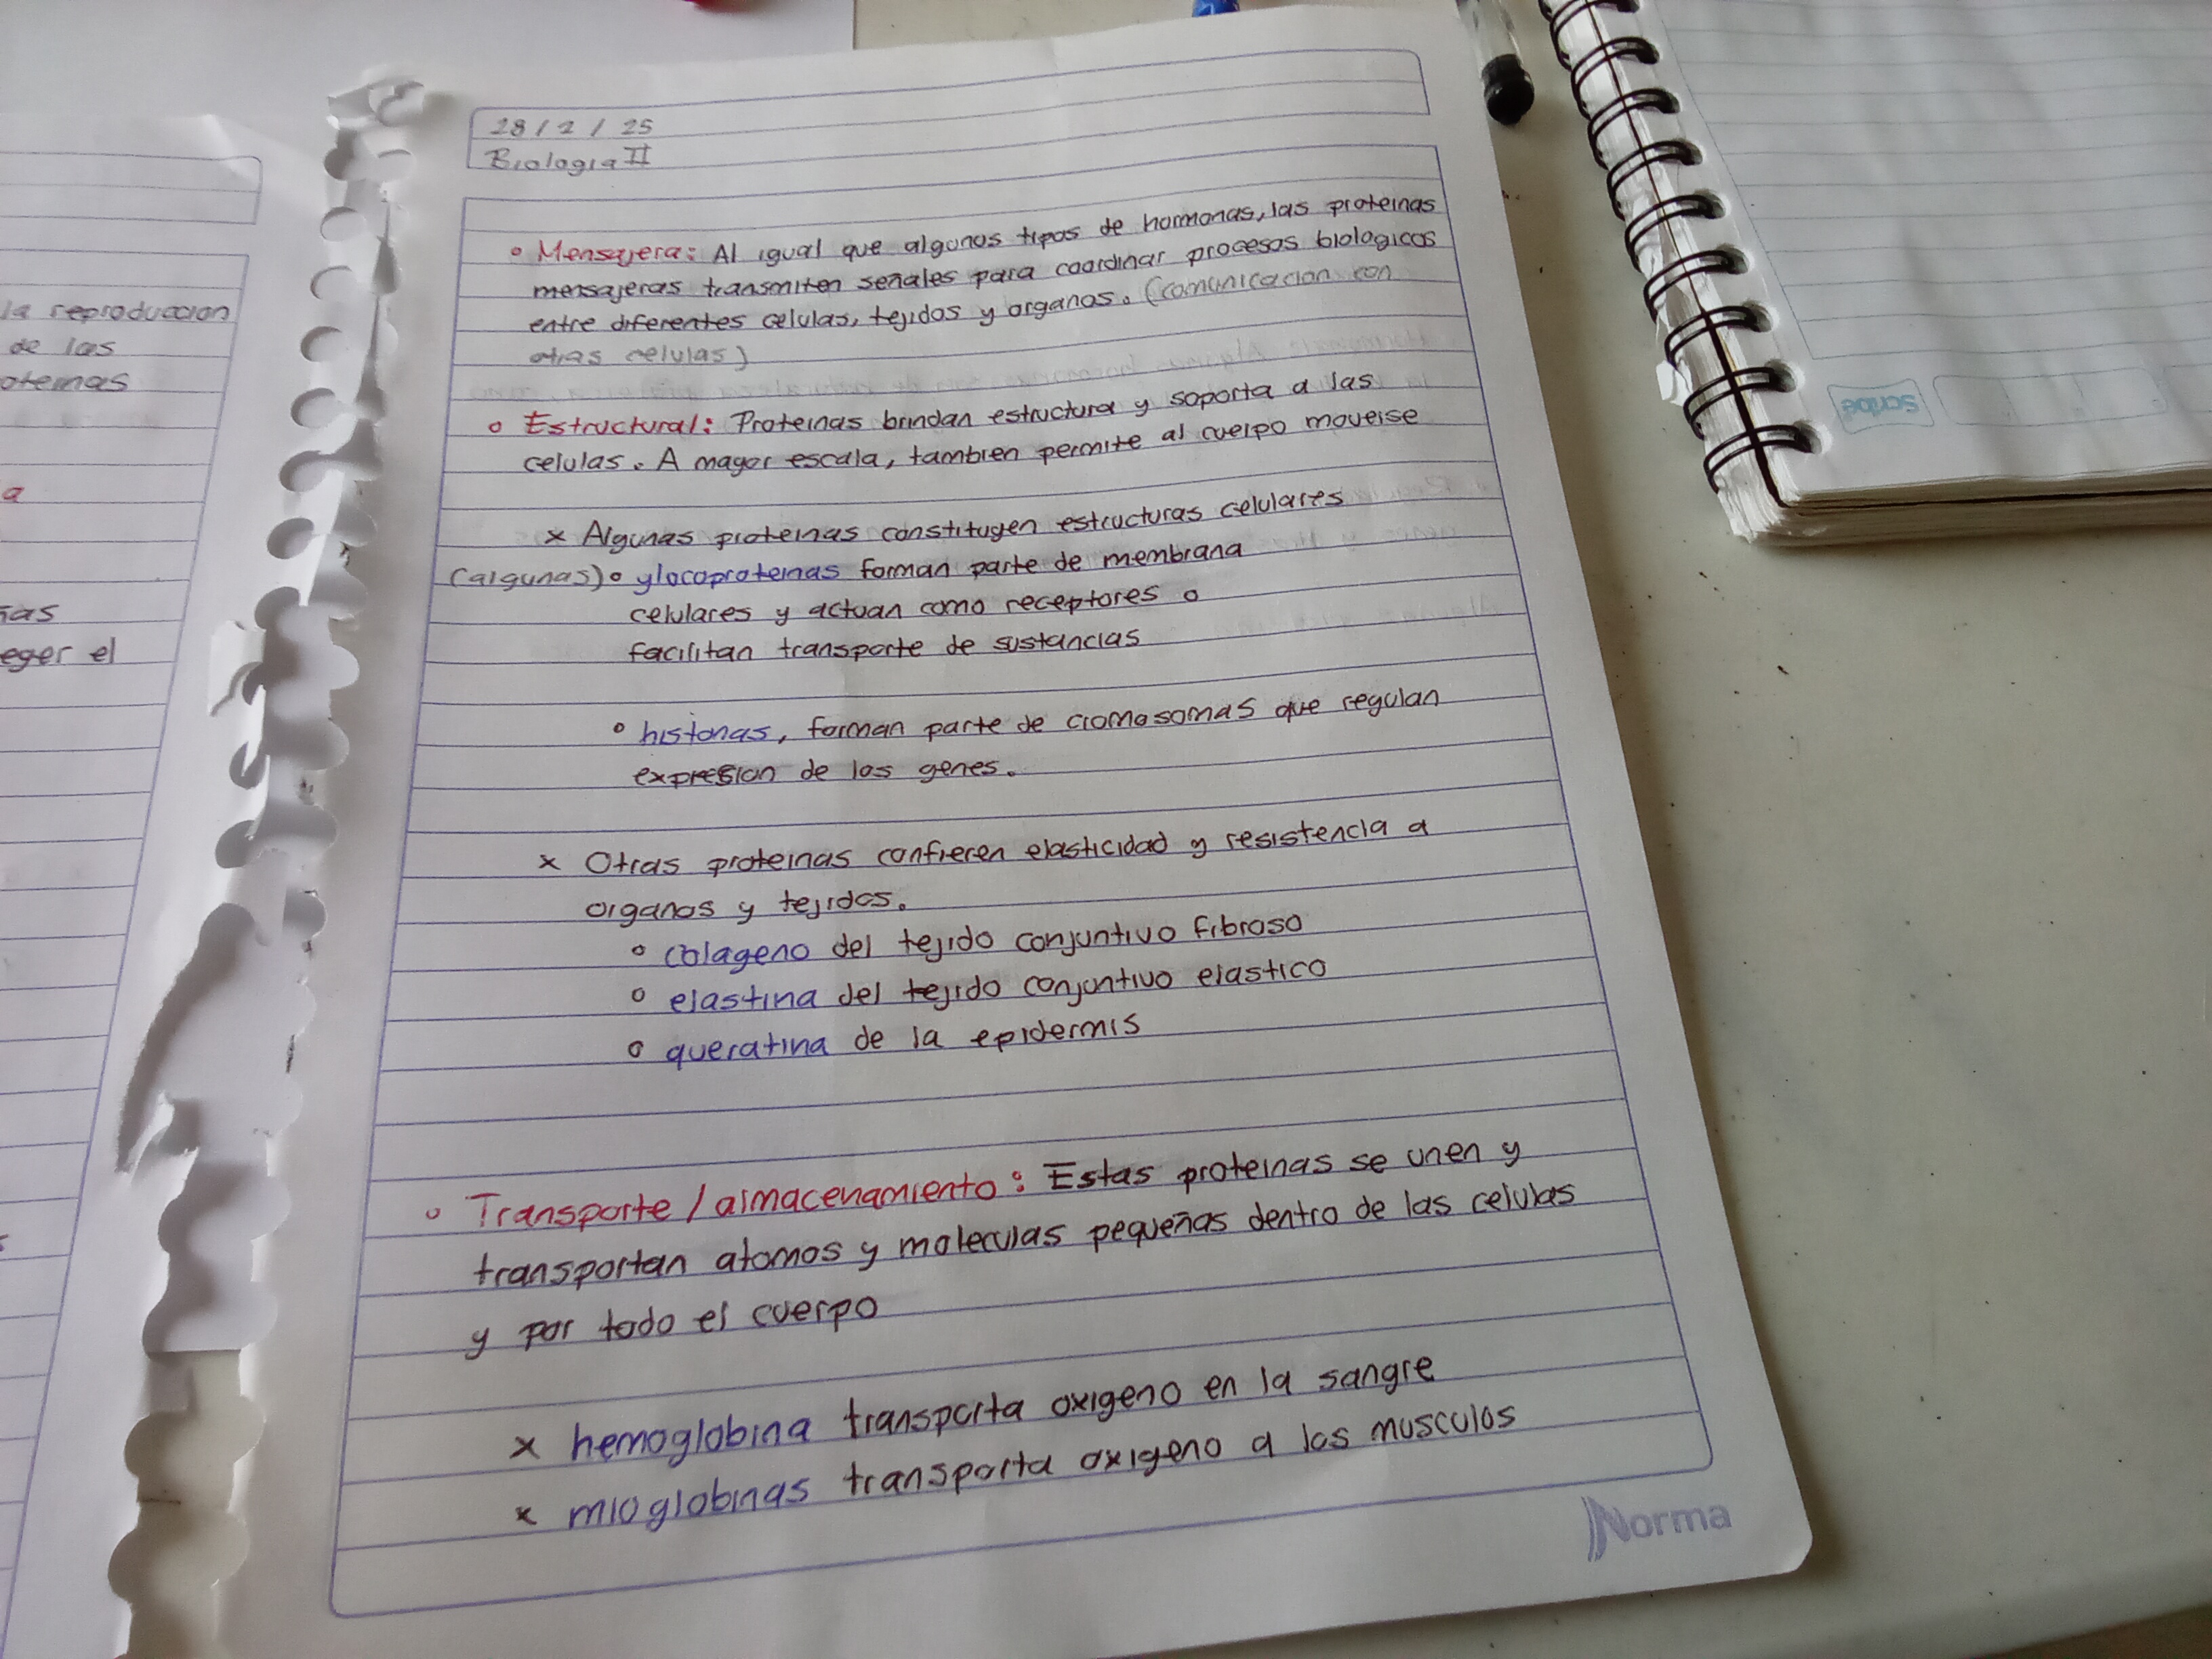 28 / 2 / 25
Biologia II
la reproduccion
de las
oteinas
a
ñas
eger el
° Mensajera: Al igual que algunos tipos de hormonas, las proteinas
mensajeras transmiten señales para coordinar procesos biologicos
entre diferentes celulas, tejidos y organos. (comunicacion con
otras celulas)
° Estructural: Proteinas brindan estructura y soporta a las
celulas. A mayor escala, tambien permite al cuerpo moverse
x Algunas proteinas constituyen estructuras celulares
(algunas) ° glocoproteinas forman parte de membrana
celulares y actuan como receptores o
facilitan transporte de sustancias
° histonas, forman parte de cromosomas que regulan
expresion de los genes.
x Otras proteinas confieren elasticidad y resistencia a
organos y tejidos.
° colageno del tejido conjuntivo fibroso
° elastina del tejido conjuntivo elastico
° queratina de la epidermis
° Transporte / almacenamiento: Estas proteinas se unen y
transportan atomos y moleculas pequeñas dentro de las celulas
y por todo el cuerpo
x hemoglobina transporta oxigeno en la sangre
x mioglobinas transporta oxigeno a los musculos
Norma
scribe